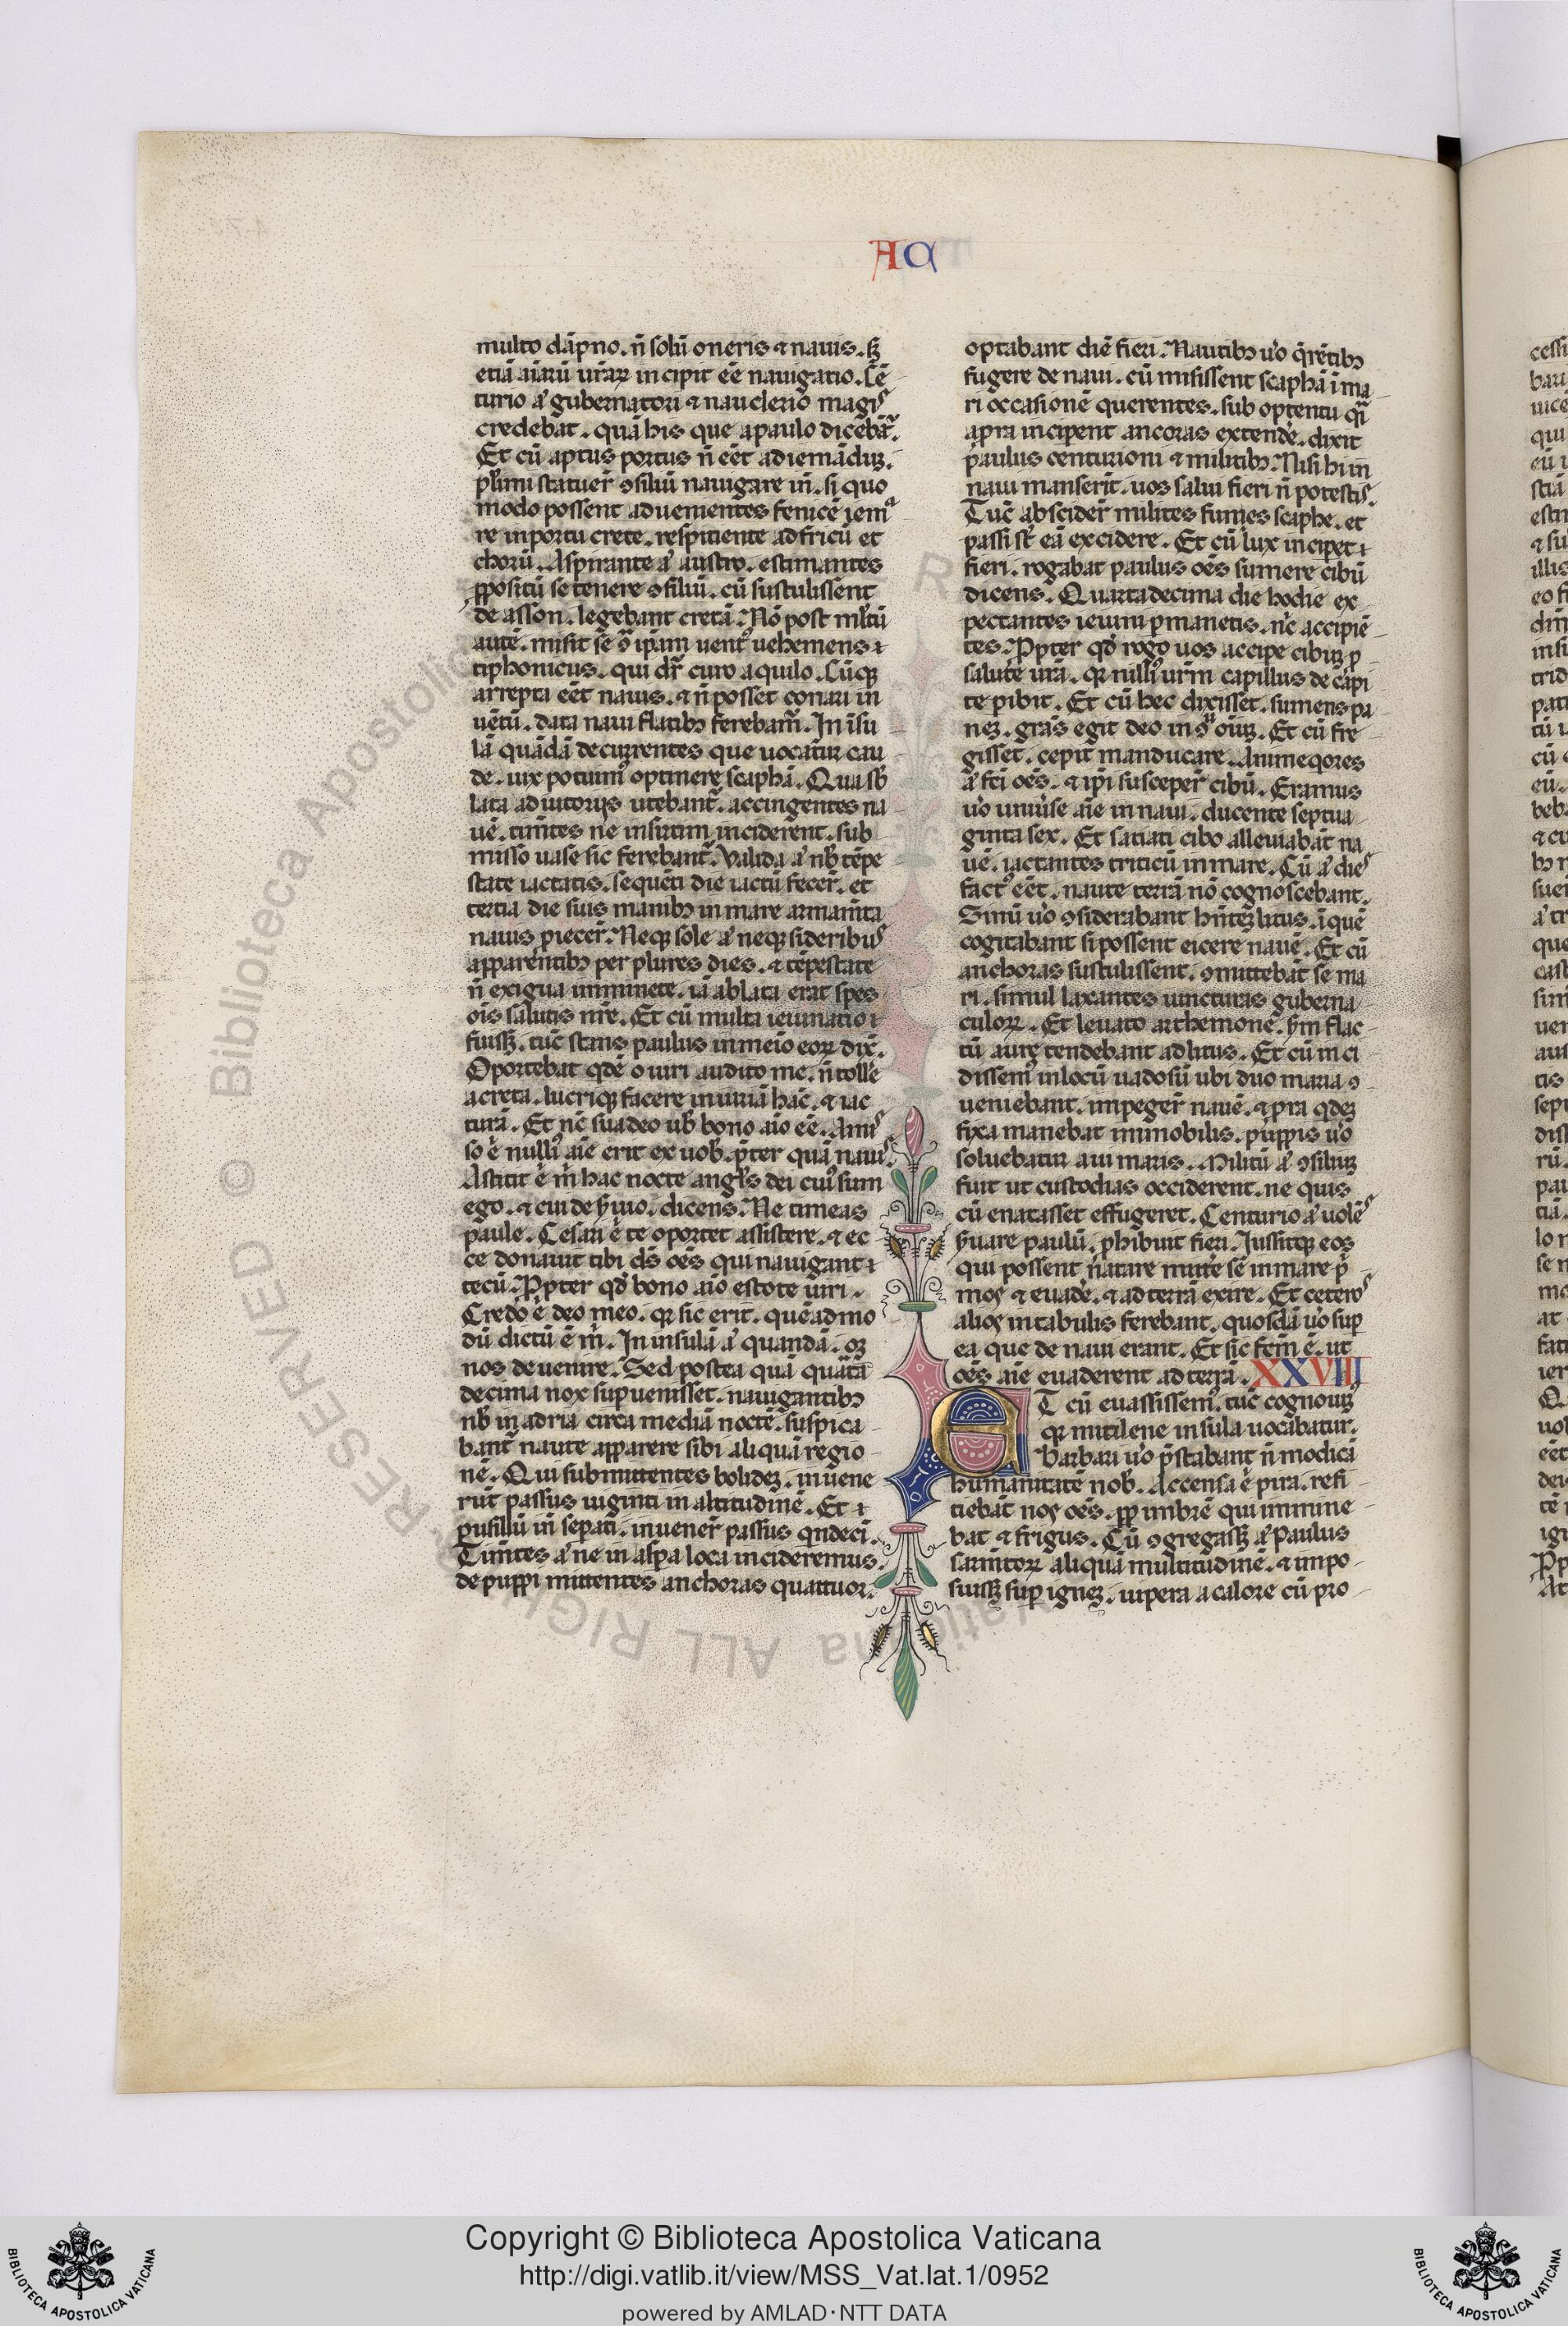 AC
multo dāpno. n̄ solū oneris ⁊ nauis. sꝫ
etiā aīarū ur̄aꝝ incipit eē nauigatio. Cē
turio aͥ gubernatori ⁊ nauclerio magiˢ
credebat. quā his que a paulo dicēbāt᷑.
Et cū aptus portus n̄ eēt ad iemādūꝫ.
pl̄imi statuer̄ ꝯsiliū nauigare īn. si quo
modo possent aduenientes fenicē iemᵃ
re in portū crete. respiciente adfricū et
chorū. Aspirante aͥ austro. estimantes
ꝓpositū se tenere ꝯsiliū. cū sustulissent
de asson. legebant cretā. Nō post ml̄tū
autē. misit sē ꝯͣ ip̄am uentꝰ uehemens
tiphonicus. qui dr̄ euro aquilo. Cūqꝫ
arrepta eēt nauis. ⁊ n̄ posset conari in
uētū. data naui flatibꝫ ferebam̄. In īsu
lā quādā decurrentes que uocatur cau
de. uix potuimꝰ optinere scaphā. Qua sb̄
lata adiutoriis utebant᷑. accingentes na
uē. tim̄tes ne in sirtim inciderent. sub
misso uase sic ferebant᷑. Valida aͥ nb̄ tēpe
state iactatis. sequēti die iactū fecer̄. et
tertia die suis manibꝫ in mare armam̄ta
nauis ꝓiecer̄. Neqꝫ sole aͥ neqꝫ sideribuˢ
apparentibꝫ per plures dies. ⁊ tēpestate
n̄ exigua imminēte. iā ablata erat spes
oīs salutis nr̄e. Et cū multa ieiunatio
fuissꝫ. tūc stans paulus in meīo eoꝝ dix̄.
Oportebat qͥdē o uiri audito me. n̄ tollē
a creta. lucriqꝫ facere iniuriā hāc. ⁊ iac
turā. Et nc̄ suadeo ub̄ bono aīo eē. Amiˢ
so ē nulliꝰ aīe erit ex uob̄. p̄ter quā nauiˢ.
Astitit ē m̄ hac nocte angl̄s dei cuiꝰ sum
ego. ⁊ cui deẜuio. dicens. Ne timeas
paule. Cesari ē te oportet assistere. ⁊ ec
ce donauit tibi ds̄ oēs qui nauigant
tecū. Ꝓpter qd̄ bono aīo estote uiri.
Credo ē deo meo. qꝛ sic erit. quēadmo
dū dictū ē m̄. In insulā aͥ quandā. oꝫ
nos deuenire. Sed postea quā quārta
decima nox supuenisset. nauigantibꝫ
nb̄ in adria circa mediā noctē. suspica
bant᷑ naute apparere sibi aliquā regio
nē. Qui submittentes bolideꝫ. inuene
rūt passus uiginti in altitudinē. Et
pusillū īn sepati. inuener̄ passus qͥndeci.
Tim̄tes aͥ ne in aspa loca incideremus.
de puppi mittentes anchoras quattuor.
optabant diē fieri. Nautibꝫ uͦo q̄rētibꝫ
fugere de naui. cū misissent scaphā ī ma
ri occasionē querentes. sub optentu qͣi
a pͬra inciperent ancoras extendē. dixit
paulus centurioni ⁊ militibꝫ. Nisi hi in
naui manserīt. uos salui fieri n̄ potestiˢ.
Tūc absciderˉ milites funes scaphe. et
passi st̄ eā excidere. Et cū lux inciper̄et
fieri. rogabat paulus oēs sumere cibū
dicens. Quartadecima die hodie ex
pectantes ieiuni ꝑmanetis. nc̄ accipiē
tes. Ꝓpter qd̄ rogo uos accipe cibūꝫ ꝓ
salute ur̄a. qꝛ nulliꝰ urm̄ capillus de capi
te ꝑibit. Et cū hec dixisset. sumens pa
neꝫ. grās egit deo in ꝯᵘ oīuꝫ. Et cū fre
gisset. cepit manducare. Animeqͦores
aͥ fc̄i oēs. ⁊ ip̄i susceper̄ cibū. Eramus
uͦo uniuerse aīe in naui. ducente septua
ginta sex. Et satiati cibo alleuiabāt na
uē. iactantes triticū in mare. Cū aͥ dieˢ
factꝰ eēt. naute terrā nō cognoscebant.
Sinū uͦo ꝯsiderabant hn̄tēꝫ litus. ī quē
cogitabant si possent eicere nauē. Et cū
anchoras sustulissent. ꝯmittebāt se ma
ri. simul laxantes iuncturas guberna
culoꝝ. Et leuato arthemone. ẜm flac
tū aure tendebant ad litus. Et cū inci
dissemꝰ in locū uadosū ubi duo maria ꝯ
ueniebant. impegēr nauē. ⁊ pͬra qͥdeꝫ
fixa manebat immobilis. puppis uͦo
soluebatur a ui maris. Militū aͥ ꝯsiliuꝫ
fuit ut custodias occiderent. ne quis
cū enatasset effugeret. Centurio aͥ uolēˢ
ẜuare paulū. ꝓhibuit fieri. Iussitqꝫ eos
qui possent natare mittē sē in mare pͥ
mos ⁊ euadē. ⁊ ad terrā exire. Et ceteroˢ
alios in tabulis ferebant. quosdā uͦo sup
ea que de naui erant. Et sic fcm̄ ē. ut
oēs aīe euaderent ad terrā. XXVIII
ET cū euassissemꝰ. tūc cognouimꝰ
qꝛ mitilene insula uocabatur.
Barbari uͦo p̄stabant n̄ modicā
humanitatē nob̄. Accensa ē pira. refi
tiebāt nos oēs. ꝓp imbrē qui immine
bat ⁊ frigus. Cū ꝯgregassꝫ aͥ Paulus
sarm̄toꝝ aliquā multitudinē. ⁊ impo
suissꝫ sup igneꝫ. uipera a calore cū pro
Copyright © Biblioteca Apostolica Vaticana
http://digi.vatlib.it/view/MSS_Vat.lat.1/0952
powered by AMLAD·NTT DATA